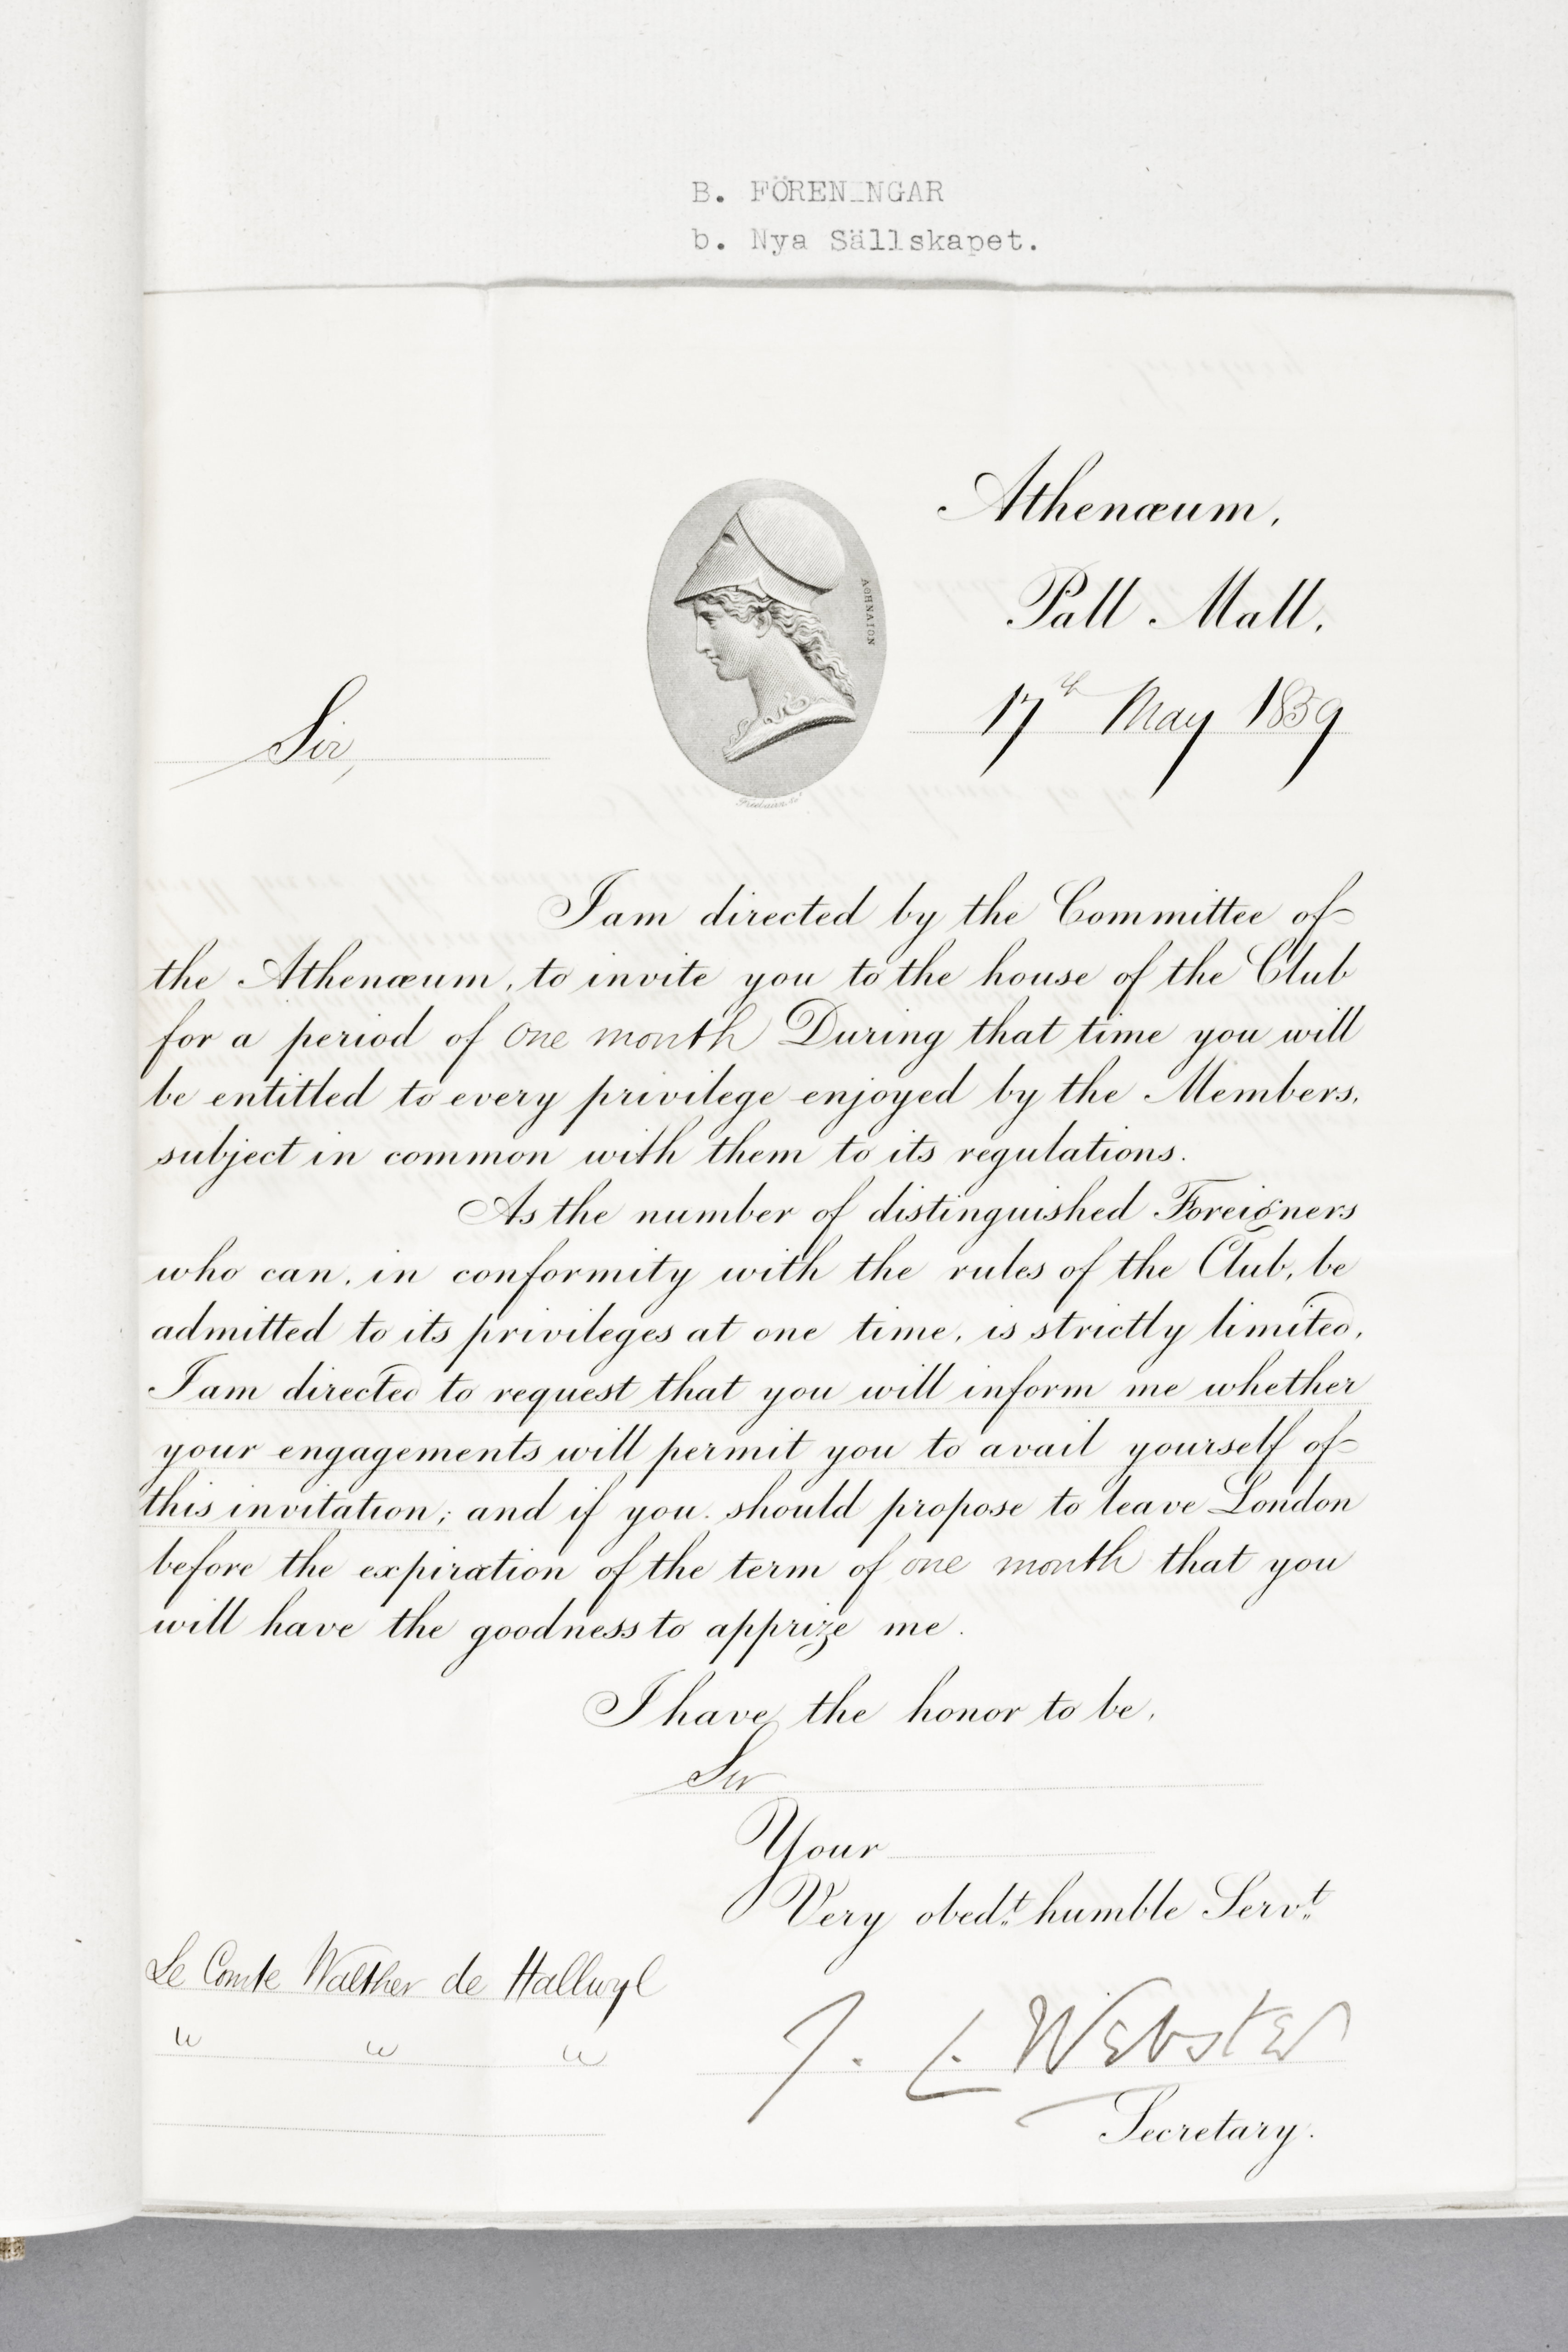 B. FÖRENINGAR
b. Nya Sällskapet.
Athenæum,
Pall Mall,
17th May 1859
ΑΘΗΝΑΙΟΝ
Sir,
I am directed by the Committee of
the Athenæum, to invite you to the house of the Club
for a period of one month During that time you will
be entitled to every privilege enjoyed by the Members,
subject in common with them to its regulations.
As the number of distinguished Foreigners
who can, in conformity with the rules of the Club, be
admitted to its privileges at one time, is strictly limited,
I am directed to request that you will inform me whether
your engagements will permit you to avail yourself of
this invitation; and if you should propose to leave London
before the expiration of the term of one month that you
will have the goodness to apprize me.
I have the honor to be,
Sir
Your
Very obedt. humble Servt.
Le Comte Walther de Hallwyl
" " "
J. C. Webster
Secretary.